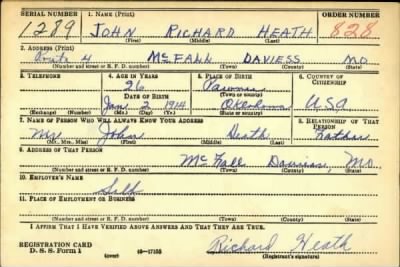 SERIAL NUMBER 1. NAME (Print) ORDER NUMBER
1289 JOHN RICHARD HEATH 828
(First) (Middle) (Last)
2. ADDRESS (Print)
Route 4 McFALL DAVIESS MO
(Number and street or R. F. D. number) (Town) (County) (State)
3. TELEPHONE 4. AGE IN YEARS 5. PLACE OF BIRTH 6. COUNTRY OF CITIZENSHIP
26 Pawnee
DATE OF BIRTH (Town or county)
Jan. 2 1914 Oklahoma USA
(Exchange) (Number) (Mo.) (Day) (Yr.) (State or country)
7. NAME OF PERSON WHO WILL ALWAYS KNOW YOUR ADDRESS 8. RELATIONSHIP OF THAT PERSON
Mr. John Heath Father
(Mr., Mrs., Miss) (First) (Middle) (Last)
9. ADDRESS OF THAT PERSON
McFall Daviess, Mo.
(Number and street or R. F. D. number) (Town) (County) (State)
10. EMPLOYER'S NAME
Self
11. PLACE OF EMPLOYMENT OR BUSINESS
(Number and street or R. F. D. number) (Town) (County) (State)
I AFFIRM THAT I HAVE VERIFIED ABOVE ANSWERS AND THAT THEY ARE TRUE.
REGISTRATION CARD
D. S. S. Form 1 (over) 16-17105 Richard Heath
(Registrant's signature)